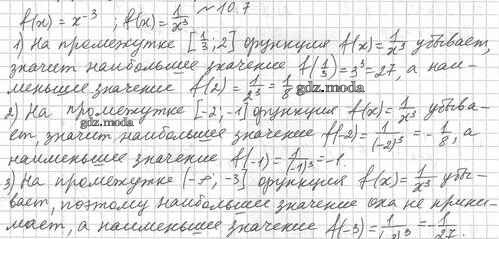 ~ 10.7
f(x) = x⁻³ ; f(x) = 1/x³
1) На промежутке [1/3; 2] функция f(x) = 1/x³ убывает,
значит наибольшее значение f(1/3) = 3³ = 27, а наи-
меньшее значение f(2) = 1/2³ = 1/8
gdz.moda
2) На промежутке [-2; -1] функция f(x) = 1/x³ убыва-
gdz.moda
ет, значит наибольшее значение f(-2) = 1/(-2)³ = -1/8, а
наименьшее значение f(-1) = 1/(-1)³ = -1.
3) На промежутке (-∞; -3] функция f(x) = 1/x³ убы-
вает, поэтому наибольшее значение она не прини-
мает, а наименьшее значение f(-3) = 1/(-3)³ = -1/27.